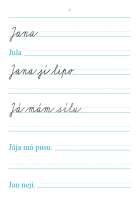 Jana
Jula
Jana jí lipo
Já mám sílu
Jája má pusu.
Jan nejí.